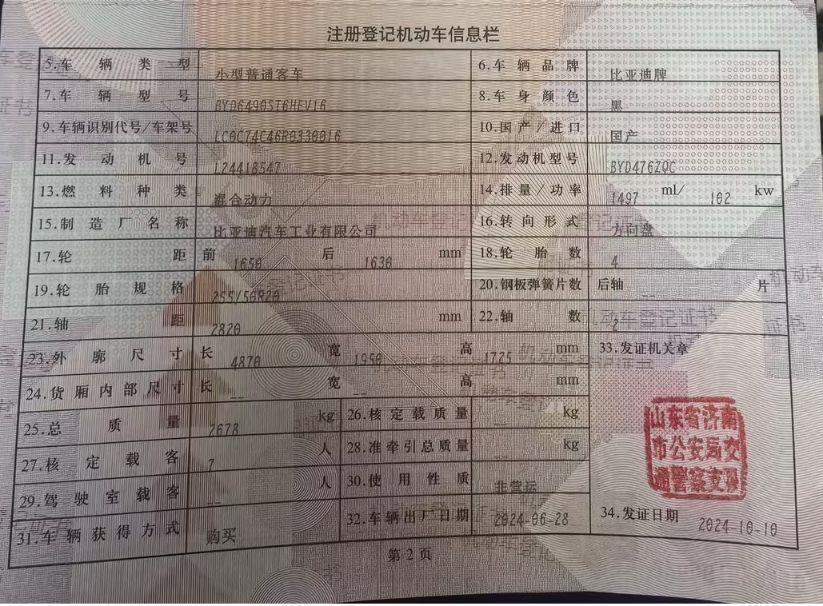 注册登记机动车信息栏
5.车辆类型 小型普通客车 6.车辆品牌 比亚迪牌
7.车辆型号 BYD6490ST6HEV16 8.车身颜色 黑
9.车辆识别代号/车架号 LC0C74C46R0330016 10.国产/进口 国产
11.发动机号 L24418547 12.发动机型号 BYD476ZQC
13.燃料种类 混合动力 14.排量/功率 1497 ml/ 102 kw
15.制造厂名称 比亚迪汽车工业有限公司 16.转向形式 方向盘
17.轮距 前 1650 后 1630 mm 18.轮胎数 4
19.轮胎规格 255/50R20 20.钢板弹簧片数 后轴 -- 片
21.轴距 2820 mm 22.轴数 2
23.外廓尺寸 长 4870 宽 1950 高 1725 mm 33.发证机关章
24.货厢内部尺寸 长 -- 宽 -- 高 -- mm
25.总质量 2678 kg 26.核定载质量 -- kg
27.核定载客 7 人 28.准牵引总质量 -- kg
29.驾驶室载客 -- 人 30.使用性质 非营运
31.车辆获得方式 购买 32.车辆出厂日期 2024-06-28 34.发证日期 2024-10-10
山东省济南
市公安局交
通警察支队
第2页